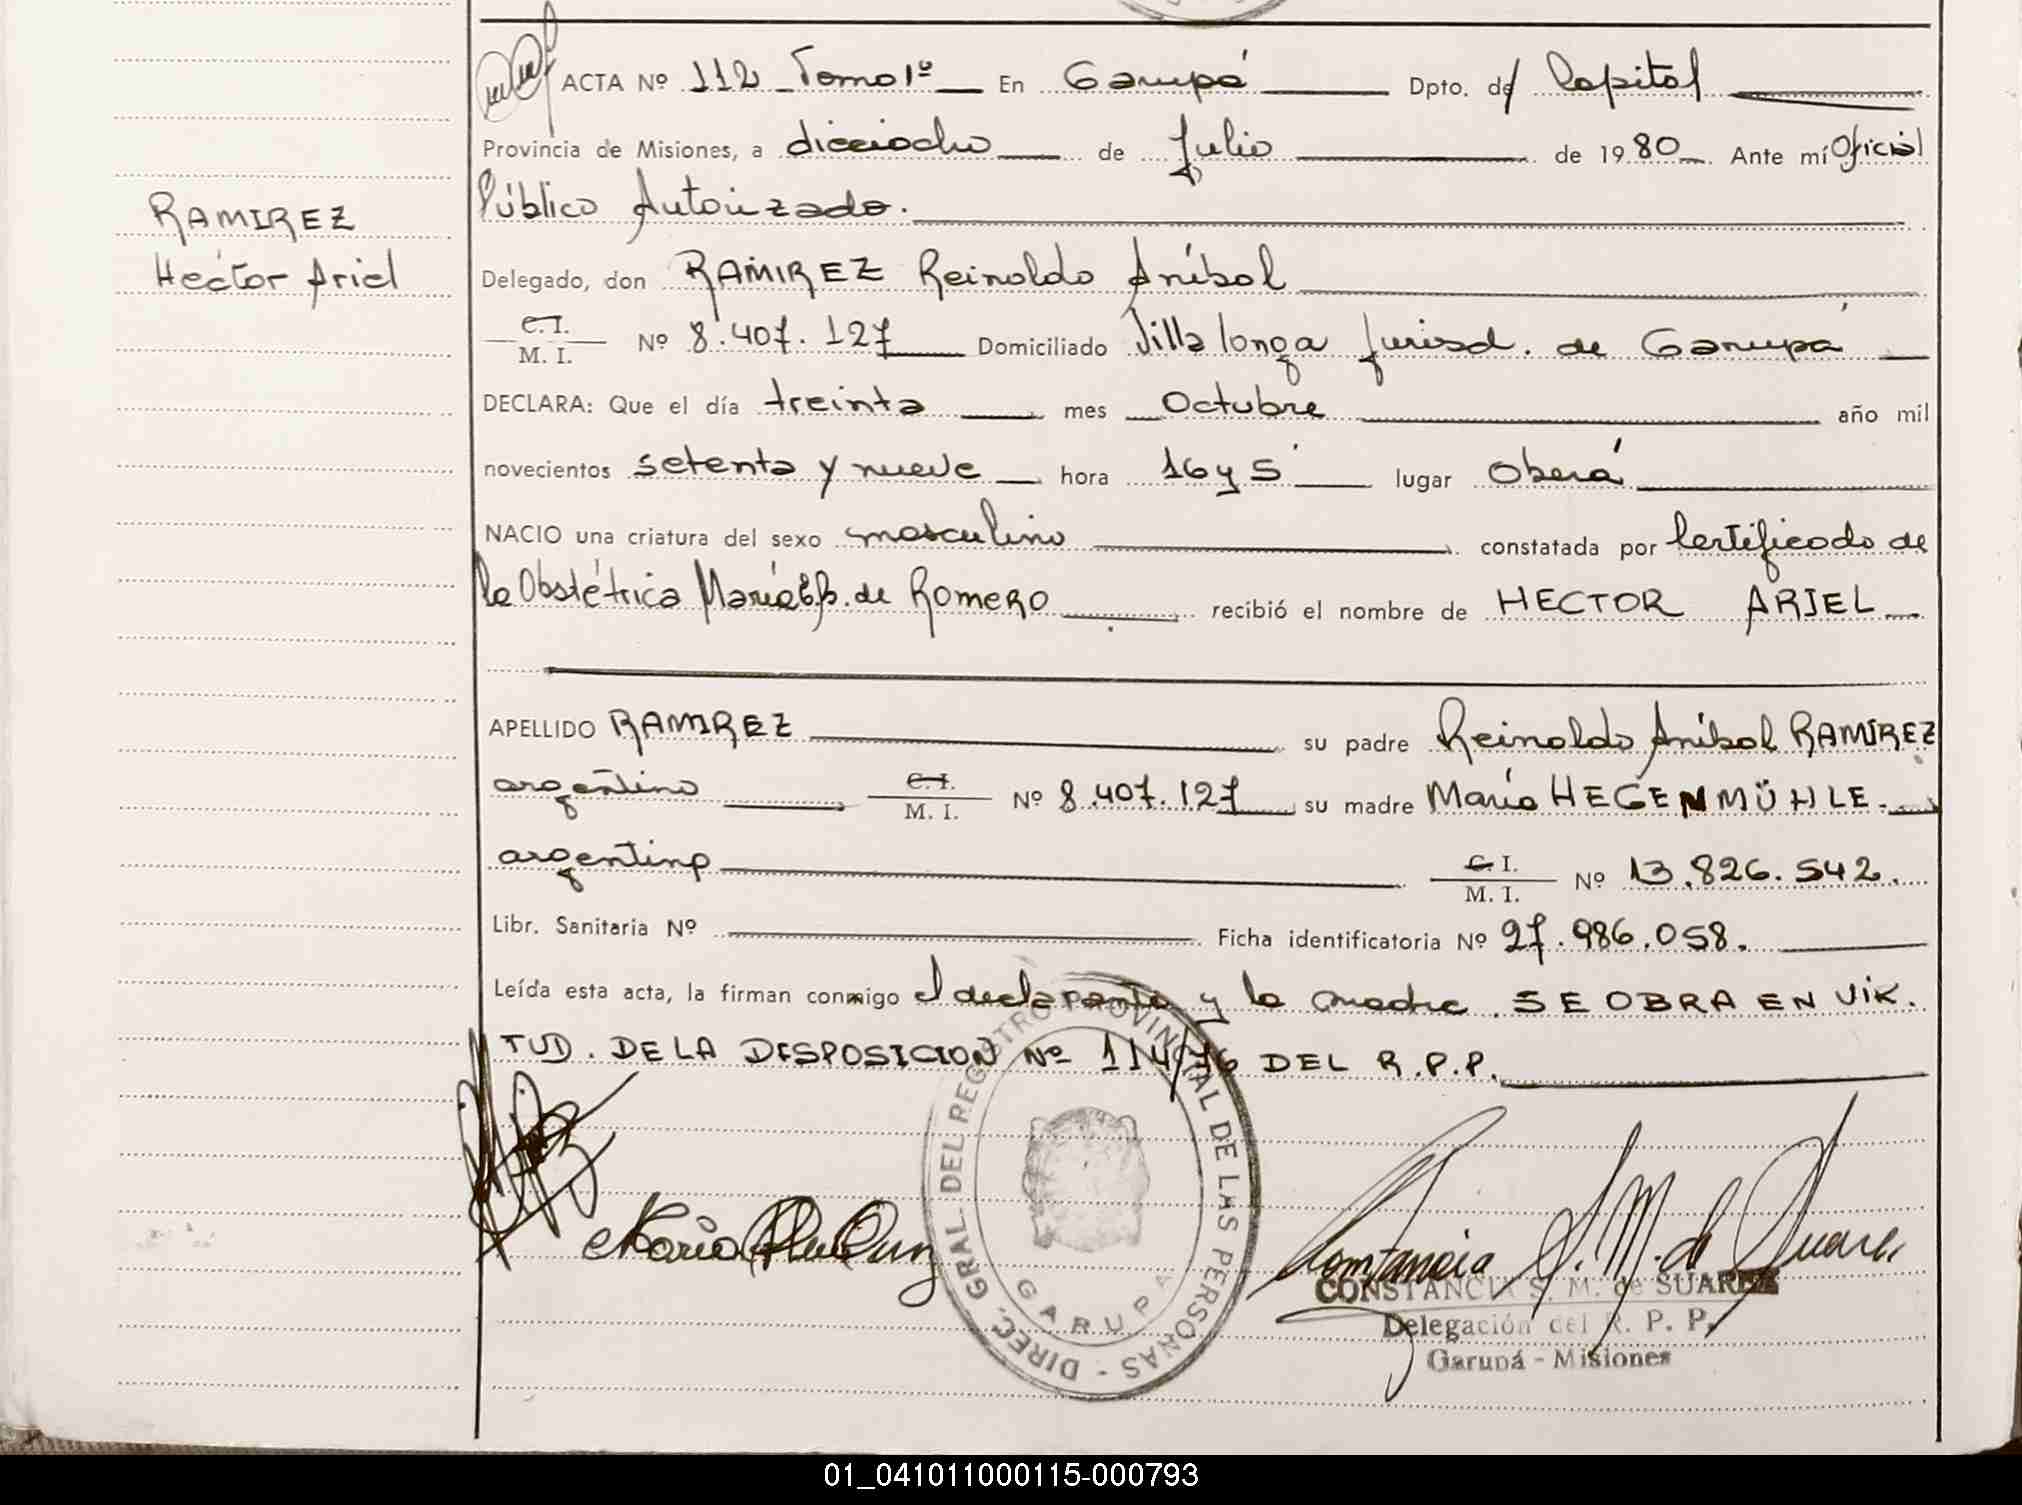 RAMIREZ
Hector Ariel
ACTA Nº 112 Tomo 1º En Garupá Dpto. de Capital
Provincia de Misiones, a dieciocho de Julio de 1980 Ante mí Oficial
Público Autorizado.
Delegado, don RAMIREZ Reinaldo Aníbal
C.I.
M. I. Nº 8.407.127 Domiciliado Villa longa Jurisd. de Garupá
DECLARA: Que el día treinta mes Octubre año mil
novecientos setenta y nueve hora 16 y 5' lugar Oberá
NACIO una criatura del sexo masculino constatada por Certificado de
la Obstétrica María de Romero recibió el nombre de HECTOR ARIEL
APELLIDO RAMIREZ su padre Reinaldo Aníbal RAMÍREZ
argentino C.I.
M. I. Nº 8.407.127 su madre María HEGENMÜHLE.
argentina C. I.
M. I. Nº 13.826.542.
Libr. Sanitaria Nº Ficha identificatoria Nº 27.986.058.
Leída esta acta, la firman conmigo el declarante y la madre. SE OBRA EN VIR.
TUD. DE LA DISPOSICION Nº 114/76 DEL R.P.P.
DIREC. GRAL. DEL REGISTRO PROVINCIAL DE LAS PERSONAS -
GARUPA
María
Constancia S. M. de Suarez
CONSTANCIA S. M. de SUAREZ
Delegación del R. P. P.
Garupá - Misiones
01_041011000115-000793